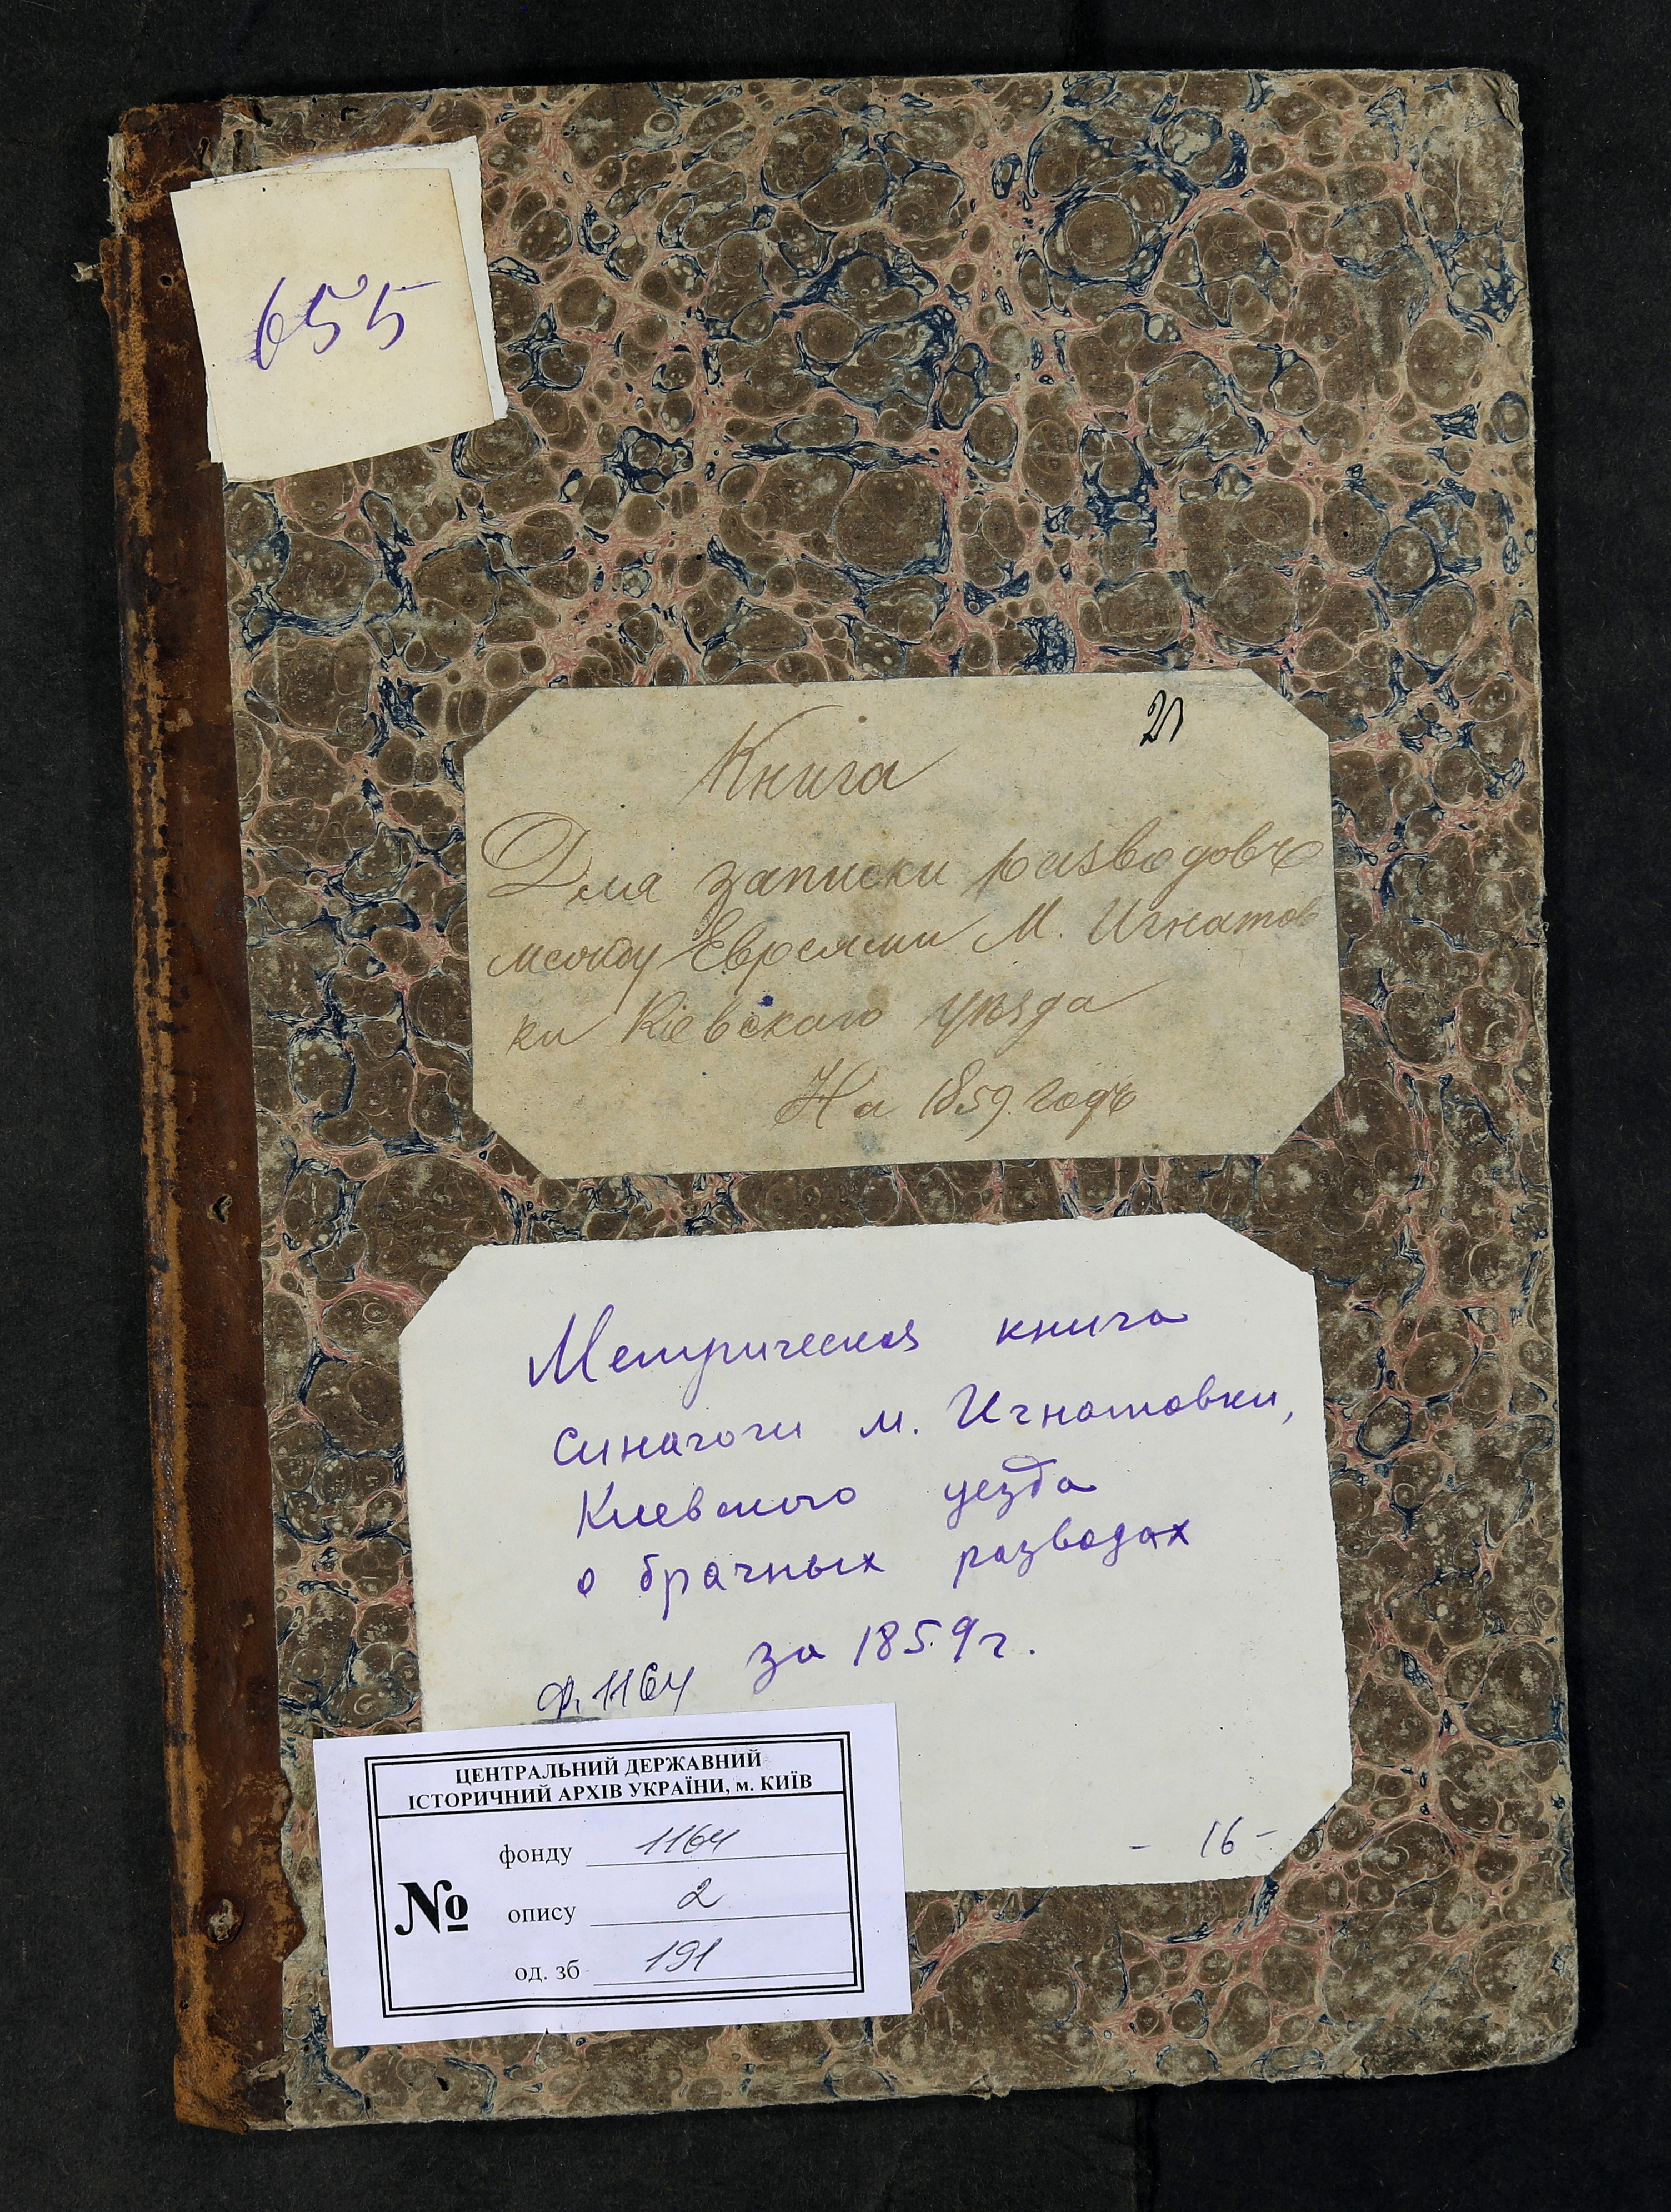 655
Книга
Для записки разводовъ
между Евреями М. Игнатов
ки Кіевскаго уѣзда
На 1859. годъ
Метрическая книга
синагоги м. Игнатовки,
Киевского уезда
о брачных разводах
за 1859 г.
ф. 1164
- 16 -
ЦЕНТРАЛЬНИЙ ДЕРЖАВНИЙ
ІСТОРИЧНИЙ АРХІВ УКРАЇНИ, м. КИЇВ
фонду 1164
№ опису 2
од. зб 191